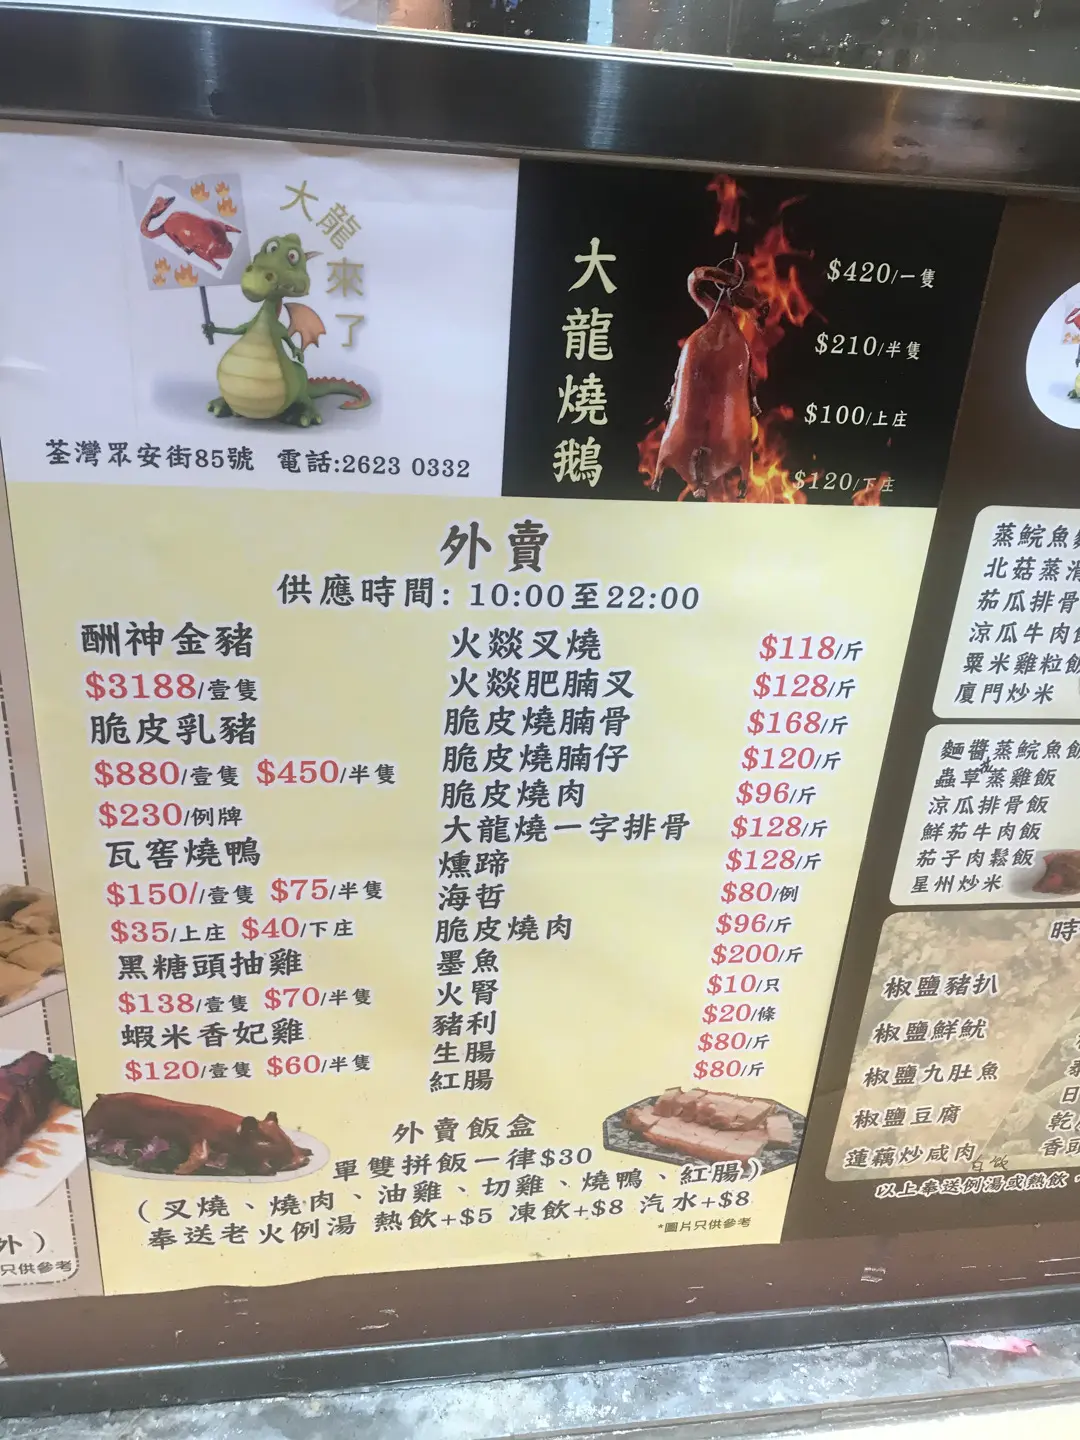 大龍來了
荃灣眾安街85號 電話:2623 0332
大龍燒鵝
$420/一隻
$210/半隻
$100/上庄
$120/下庄
外賣
供應時間: 10:00至22:00
酬神金豬
$3188/壹隻
脆皮乳豬
$880/壹隻 $450/半隻
$230/例牌
瓦窖燒鴨
$150//壹隻 $75/半隻
$35/上庄 $40/下庄
黑糖頭抽雞
$138/壹隻 $70/半隻
蝦米香妃雞
$120/壹隻 $60/半隻
火燚叉燒 $118/斤
火燚肥腩叉 $128/斤
脆皮燒腩骨 $168/斤
脆皮燒腩仔 $120/斤
脆皮燒肉 $96/斤
大龍燒一字排骨 $128/斤
燻蹄 $128/斤
海哲 $80/例
脆皮燒肉 $96/斤
墨魚 $200/斤
火腎 $10/只
豬利 $20/條
生腸 $80/斤
紅腸 $80/斤
外賣飯盒
單雙拼飯一律$30
(叉燒、燒肉、油雞、切雞、燒鴨、紅腸)
奉送老火例湯 熱飲+$5 凍飲+$8 汽水+$8
*圖片只供參考
蒸鯇魚
北菇蒸滑
茄瓜排骨
涼瓜牛肉
粟米雞粒飯
廈門炒米
麵醬蒸鯇魚飯
蟲草花蒸雞飯
涼瓜排骨飯
鮮茄牛肉飯
茄子肉鬆飯
星州炒米
時
椒鹽豬扒
椒鹽鮮魷
椒鹽九肚魚
椒鹽豆腐
蓮藕炒咸肉
日
乾
香
以上奉送例湯或熱飲
外)
只供參考